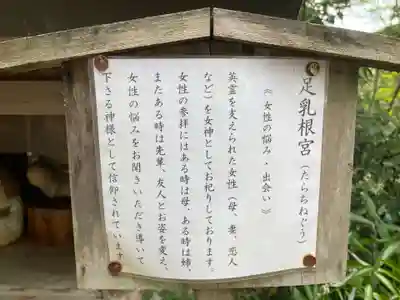 足乳根宮(たらちねぐう)
《女性の悩み・出会い》
英霊を支えられた女性(母、妻、恋人
など)を女神としてお祀りしております。
女性の参拝にはある時は母、ある時は姉、
またある時は先輩、友人とお姿を変え、
女性の悩みをお聞きいただき導いて
下さる神様として信仰されています。